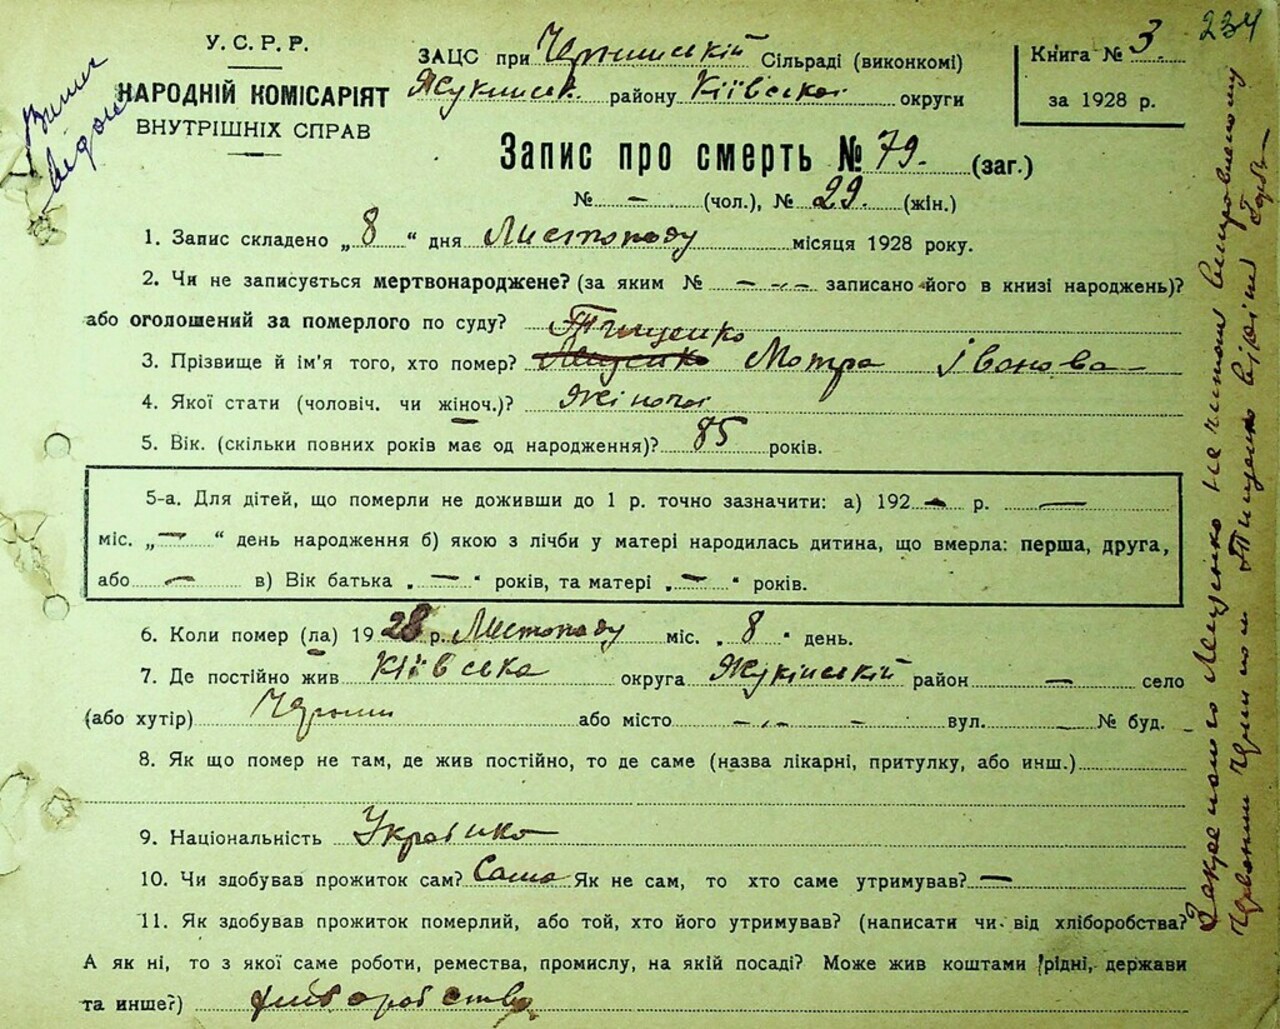 234
У. С. Р. Р.
НАРОДНІЙ КОМІСАРІЯТ
ВНУТРІШНІХ СПРАВ
Вищ
ЗАЦС при Чернинській Сільраді (виконкомі)
Жукинськ. району Київської округи
Книга № 3.
за 1928 р.
Запис про смерть № 79. (заг.)
№ — (чол.), № 29. (жін.)
1. Запис складено „ 8 “ дня Листопаду місяця 1928 року.
2. Чи не записується мертвонароджене? (за яким № — -.- записано його в книзі народжень)?
або оголошений за померлого по суду?
Тищенко
3. Прізвище й ім'я того, хто помер? Лещенко Мотра Іванова —
4. Якої стати (чоловіч. чи жіноч.)? жіночої
5. Вік. (скільки повних років має од народження)? 85 років.
5-а. Для дітей, що померли не доживши до 1 р. точно зазначити: а) 192 — р. —
міс. „ — “ день народження б) якою з лічби у матері народилась дитина, що вмерла: перша, друга,
або — в) Вік батька „ — “ років, та матері „ — “ років.
6. Коли помер (ла) 1928 р. Листопаду міс. „ 8 “ день.
7. Де постійно жив Київська округа Жукінській район — село
(або хутір) Чернин або місто - .- - вул. — № буд. -
8. Як що помер не там, де жив постійно, то де саме (назва лікарні, притулку, або инш.)
9. Національність Українка
10. Чи здобував прожиток сам? Сама Як не сам, то хто саме утримував? —
11. Як здобував прожиток померлий, або той, хто його утримував? (написати чи від хліборобства?
А як ні, то з якої саме роботи, ремества, промислу, на якій посаді? Може жив коштами рідні, держави
та инше?) хліборобство
Закресленого Лещенко не читати виправленому
Тищенко вірити